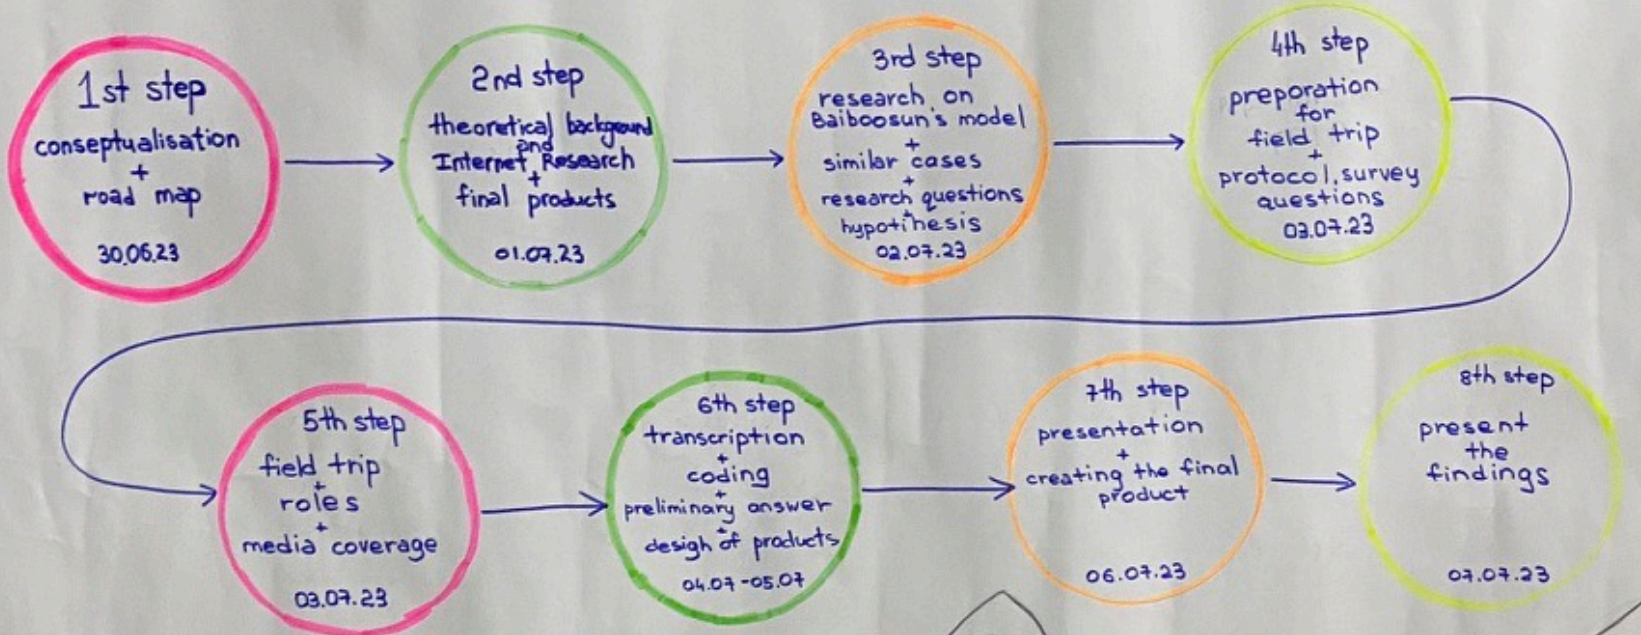 1st step
conseptualisation
+
road map
30.06.23
2nd step
theoretical backgound
and
Internet Research
+
final products
01.07.23
3rd step
research on
Baiboosun's model
+
similar cases
+
research questions
+
hypothesis
02.07.23
4th step
preporation
for
field trip
+
protocol, survey
questions
03.07.23
5th step
field trip
+
roles
+
media coverage
03.07.23
6th step
transcription
+
coding
+
preliminary answer
+
desigh of products
04.07-05.07
7th step
presentation
+
creating the final
product
06.07.23
8th step
present
the
findings
07.07.23